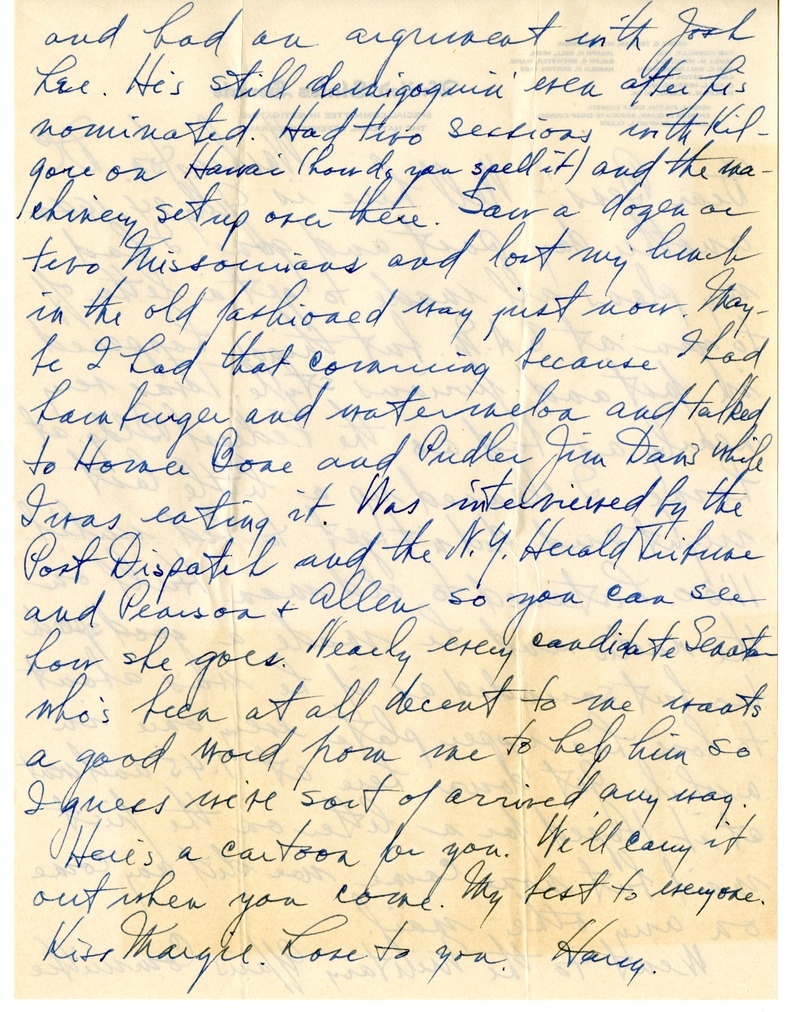 and had an argument with Josh
Lee. He's still demigoguin' even after his
nominated. Had two sessions with Kil-
gore on Hawai (how do you spell it) and the ma-
chinery set up over there. Saw a dozen or
two Missourians and lost my lunch
in the old fashioned way just now. May-
be I had that comming because I had
hamburger and watermelon and talked
to Homer Bone and Pudler Jim Davis while
I was eating it. Was interviewed by the
Post Dispatch and the N.Y. Herald Tribune
and Pearson + Allen so you can see
how she goes. Nearly every candidate Senator
who's been at all decent to me wants
a good word from me to help him so
I guess we're sort of arrived any way.
Here's a cartoon for you. We'll carry it
out when you come. My best to everyone.
Kiss Margie. Love to you. Harry.